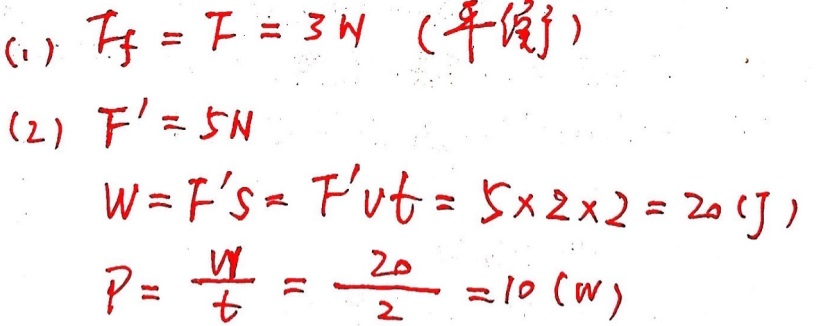 (1) Ff = F = 3N (平衡)
(2) F' = 5N
W = F's = F'vt = 5×2×2 = 20(J)
P = W/t = 20/2 = 10(W)